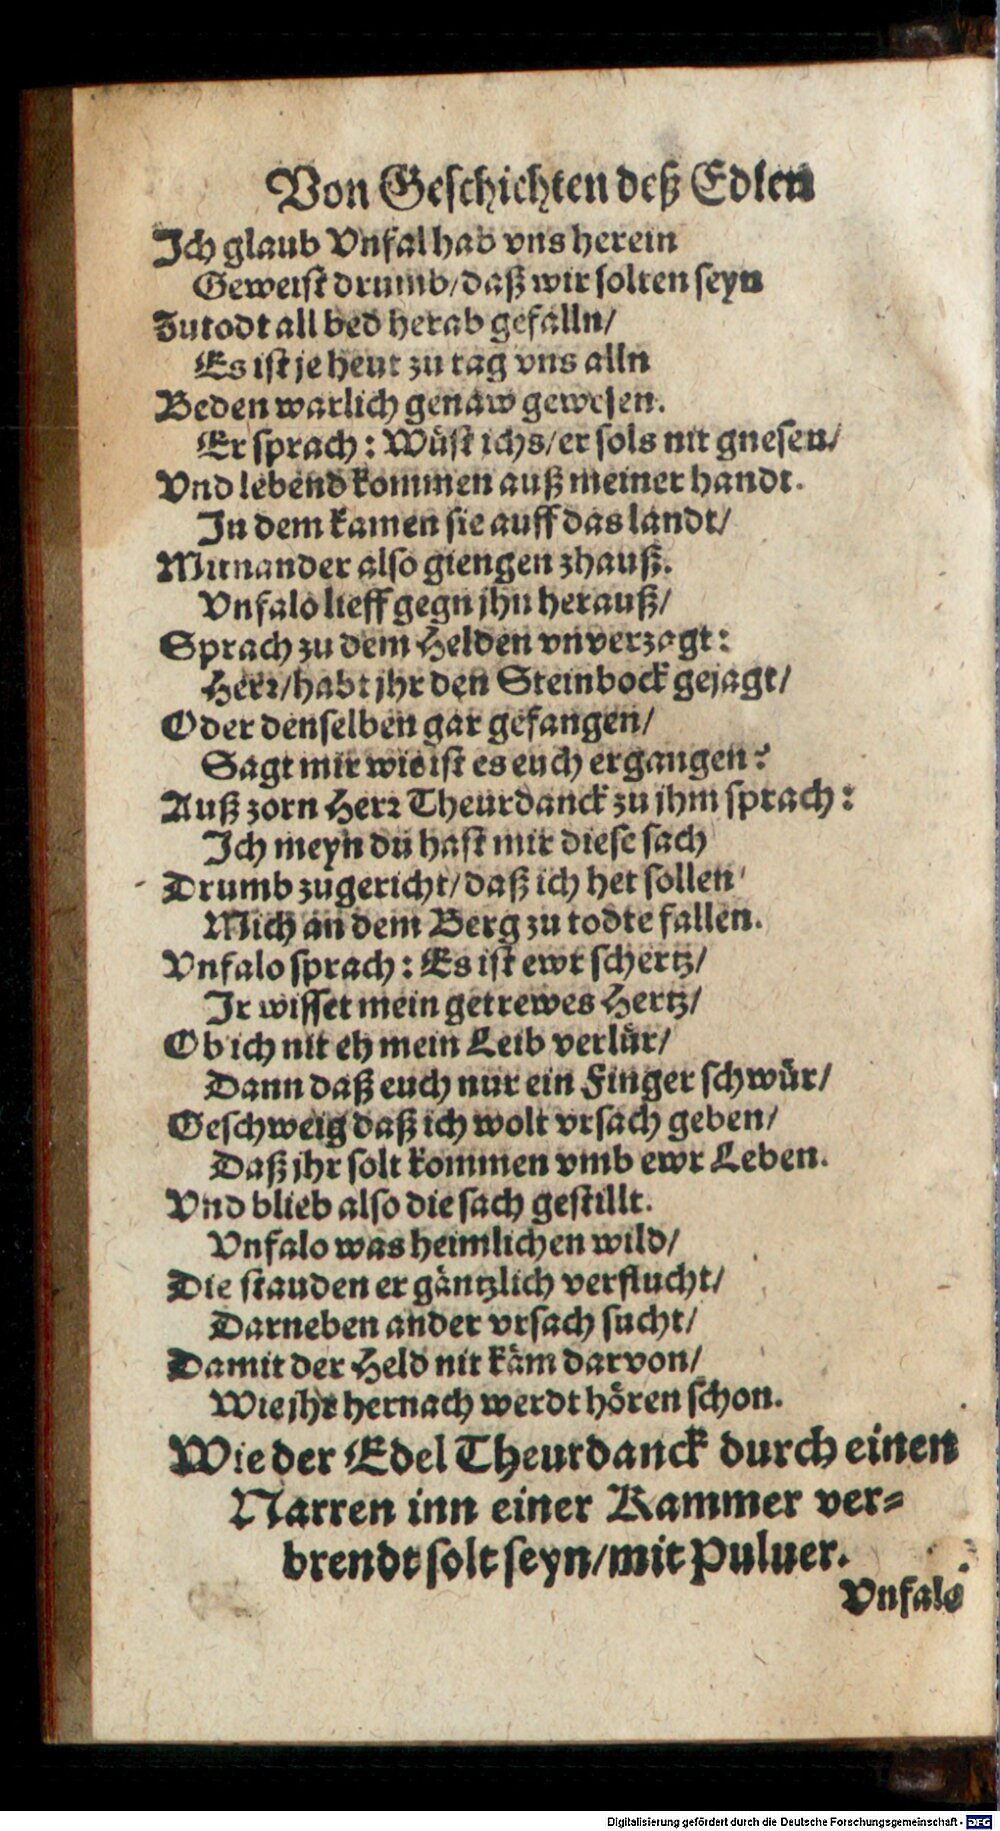 Von Geschichten deß Edlen
Ich glaub Vnfal hab vns herein
Geweist drumb/daß wir solten seyn
Zu todt all bed herab gefalln/
Es ist je heut zu tag vns alln
Beden warlich genaw gewesen.
Er sprach: Wüst ichs/er sols nit gnesen/
Vnd lebend kommen auß meiner handt.
In dem kamen sie auff das landt/
Mitnander also giengen zhauß.
Vnfalo lieff gegn jhn herauß/
Sprach zu dem Helden vnverzagt:
Herr/habt jhr den Steinbock gejagt/
Oder denselben gar gefangen/
Sagt mir wie ist es euch ergangen?
Auß zorn Herr Theurdanck zu jhm sprach:
Ich meyn du hast mir diese sach
Drumb zugericht/daß ich het sollen
Mich an dem Berg zu todte fallen.
Vnfalo sprach: Es ist ewr schertz/
Ir wisset mein getrewes Hertz/
Ob ich nit eh mein Leib verlür/
Dann daß euch nur ein Finger schwür/
Geschweig daß ich wolt vrsach geben/
Daß jhr solt kommen vmb ewr Leben.
Vnd blieb also die sach gestillt.
Vnfalo was heimlichen wild/
Die stauden er gäntzlich verflucht/
Darneben ander vrsach sucht/
Damit der Held nit käm darvon/
Wie jhr hernach werdt hören schon.
Wie der Edel Theurdanck durch einen
Narren inn einer Kammer ver⸗
brendt solt seyn/mit Puluer.
Vnfalo
Digitalisierung gefördert durch die Deutsche Forschungsgemeinschaft - DFG